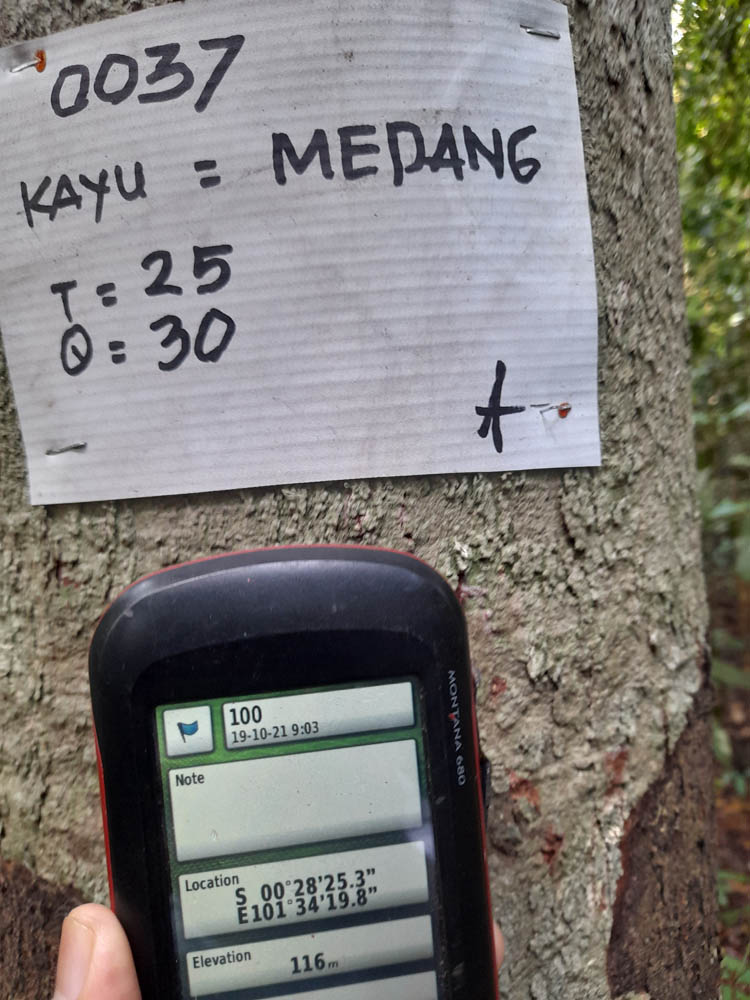 0037
KAYU = MEDANG
T = 25
Q = 30
A
MONTANA 680
100
19-10-21 9:03
Note
Location
S 00°28'25.3"
E101°34'19.8"
Elevation
116 m